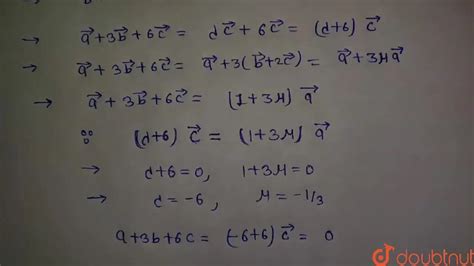 → a⃗+3b⃗+6c⃗ = d c⃗ + 6c⃗ = (d+6) c⃗
→ a⃗+3b⃗+6c⃗ = a⃗+3(b⃗+2c⃗) = a⃗+3μa⃗
→ a⃗+3b⃗+6c⃗ = (1+3μ) a⃗
∵ (d+6) c⃗ = (1+3μ) a⃗
→ d+6=0, 1+3μ=0
→ d=-6, μ=-1/3
a+3b+6c = (-6+6) c⃗ = 0
doubtnut